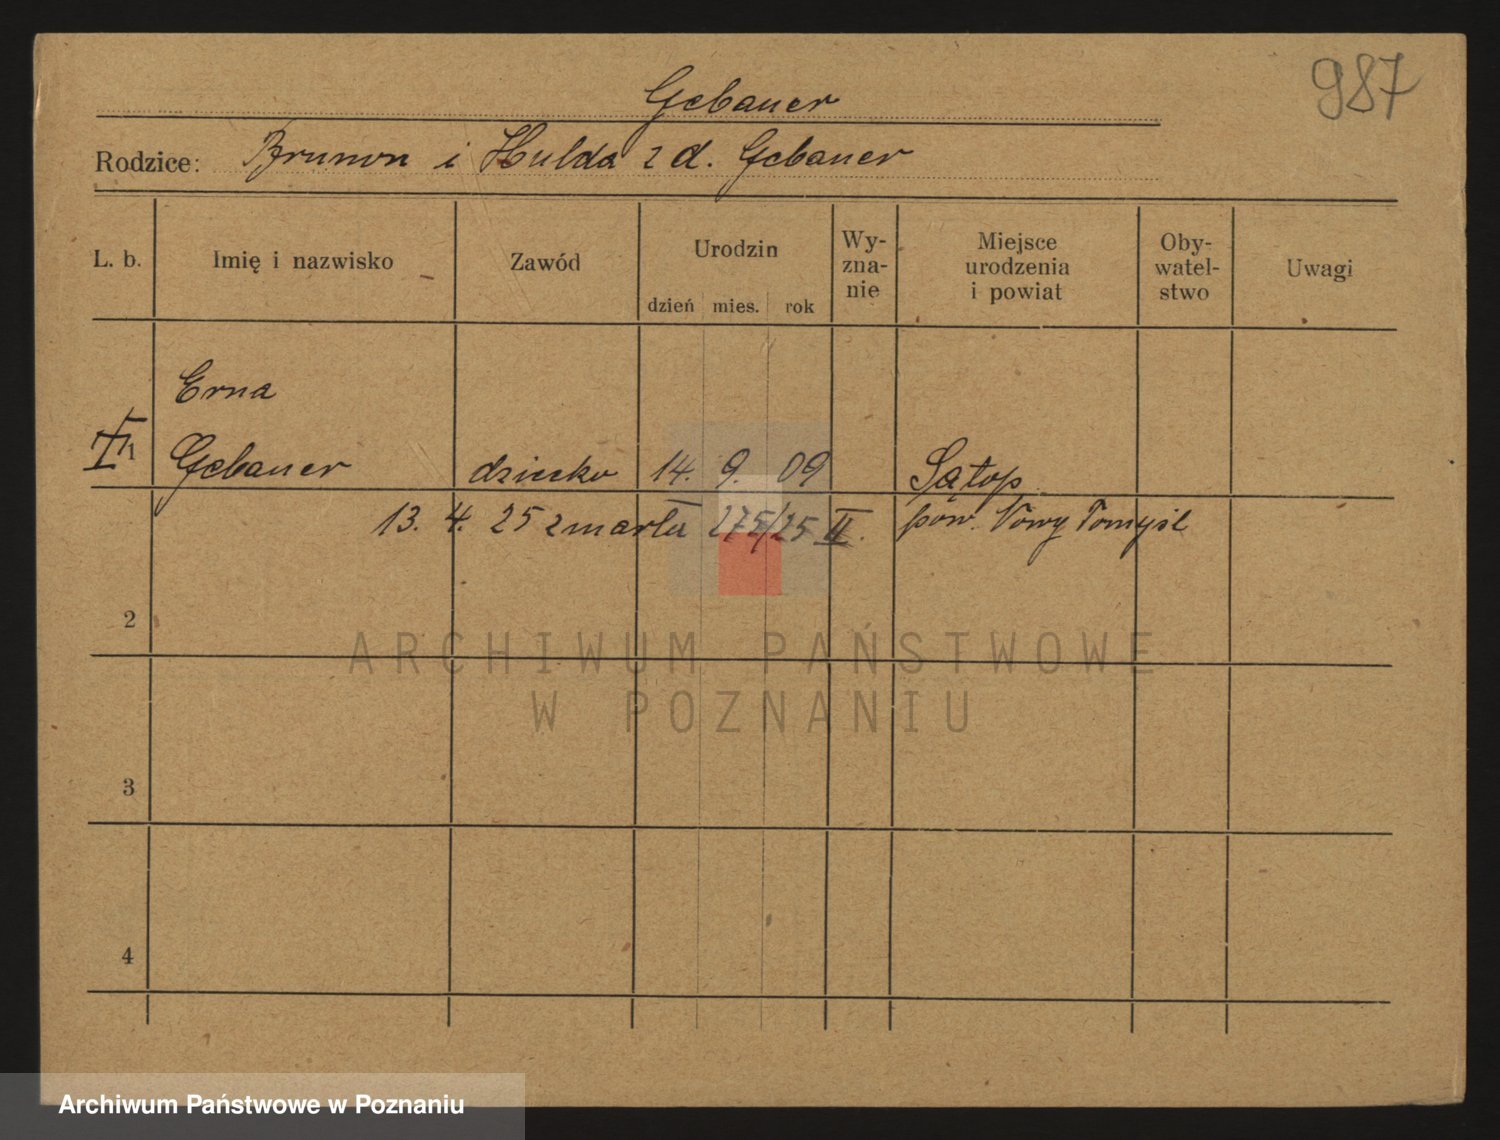 987
Gebauer
Rodzice: Brunon i Hulda z d. Gebauer
L. b.
Imię i nazwisko
Zawód
Urodzin
dzień mies. rok
Wy-
zna-
nie
Miejsce
urodzenia
i powiat
Oby-
watel-
stwo
Uwagi
Erna
1 Gebauer dziecko 14. 9. 09 Sątop
13. 4. 25 zmarła 275/25 II. pow. Nowy Tomyśl
2
ARCHIWUM PAŃSTWOWE
W POZNANIU
3
4
Archiwum Państwowe w Poznaniu